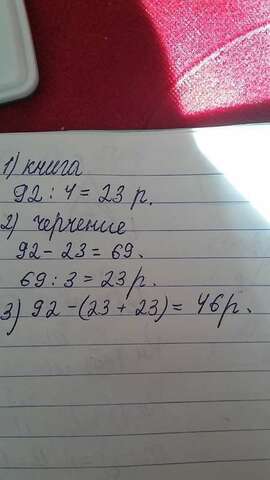 1) книга
92 : 4 = 23 р.
2) черчение
92 - 23 = 69.
69 : 3 = 23 р.
3) 92 - (23 + 23) = 46 р.